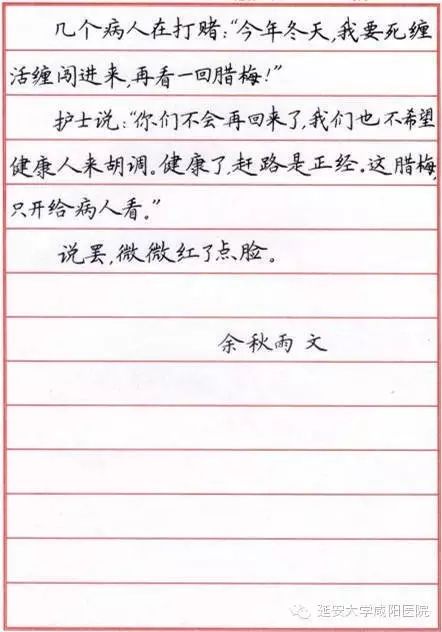 几个病人在打赌：“今年冬天，我要死缠
活缠闯进来，再看一回腊梅！”
护士说：“你们不会再回来了，我们也不希望
健康人来胡调。健康了，赶路是正经。这腊梅，
只开给病人看。”
说罢，微微红了点脸。
余秋雨 文
延安大学咸阳医院